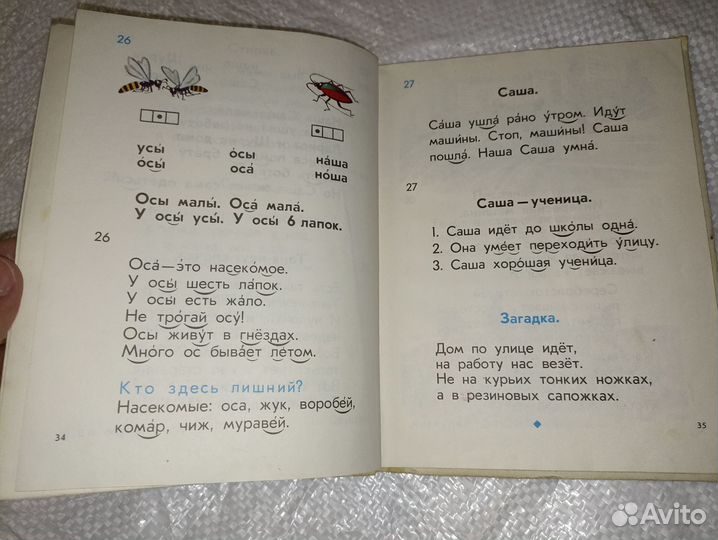 26
усы́ о́сы на́ша
о́сы оса́ но́ша
Осы малы́. Оса́ мала́.
У осы́ усы́. У осы́ 6 лапок.
26
Оса́ — э́то насеко́мое.
У осы́ шесть ла́пок.
У осы́ есть жа́ло.
Не тро́гай осу́!
Осы живу́т в гнёздах.
Мно́го ос быва́ет ле́том.
Кто здесь лишний?
Насекомые: оса, жук, воробе́й,
кома́р, чиж, мураве́й.
34
27
Саша.
Са́ша ушла́ ра́но у́тром. Иду́т
маши́ны. Стоп, маши́ны! Саша
пошла́. Наша Саша умна́.
27
Саша — ученица.
1. Саша идёт до шко́лы одна́.
2. Она уме́ет переходи́ть у́лицу.
3. Саша хоро́шая учени́ца.
Загадка.
Дом по улице идёт,
на работу нас везёт.
Не на курьих тонких ножках,
а в резиновых сапожках.
35
Avito